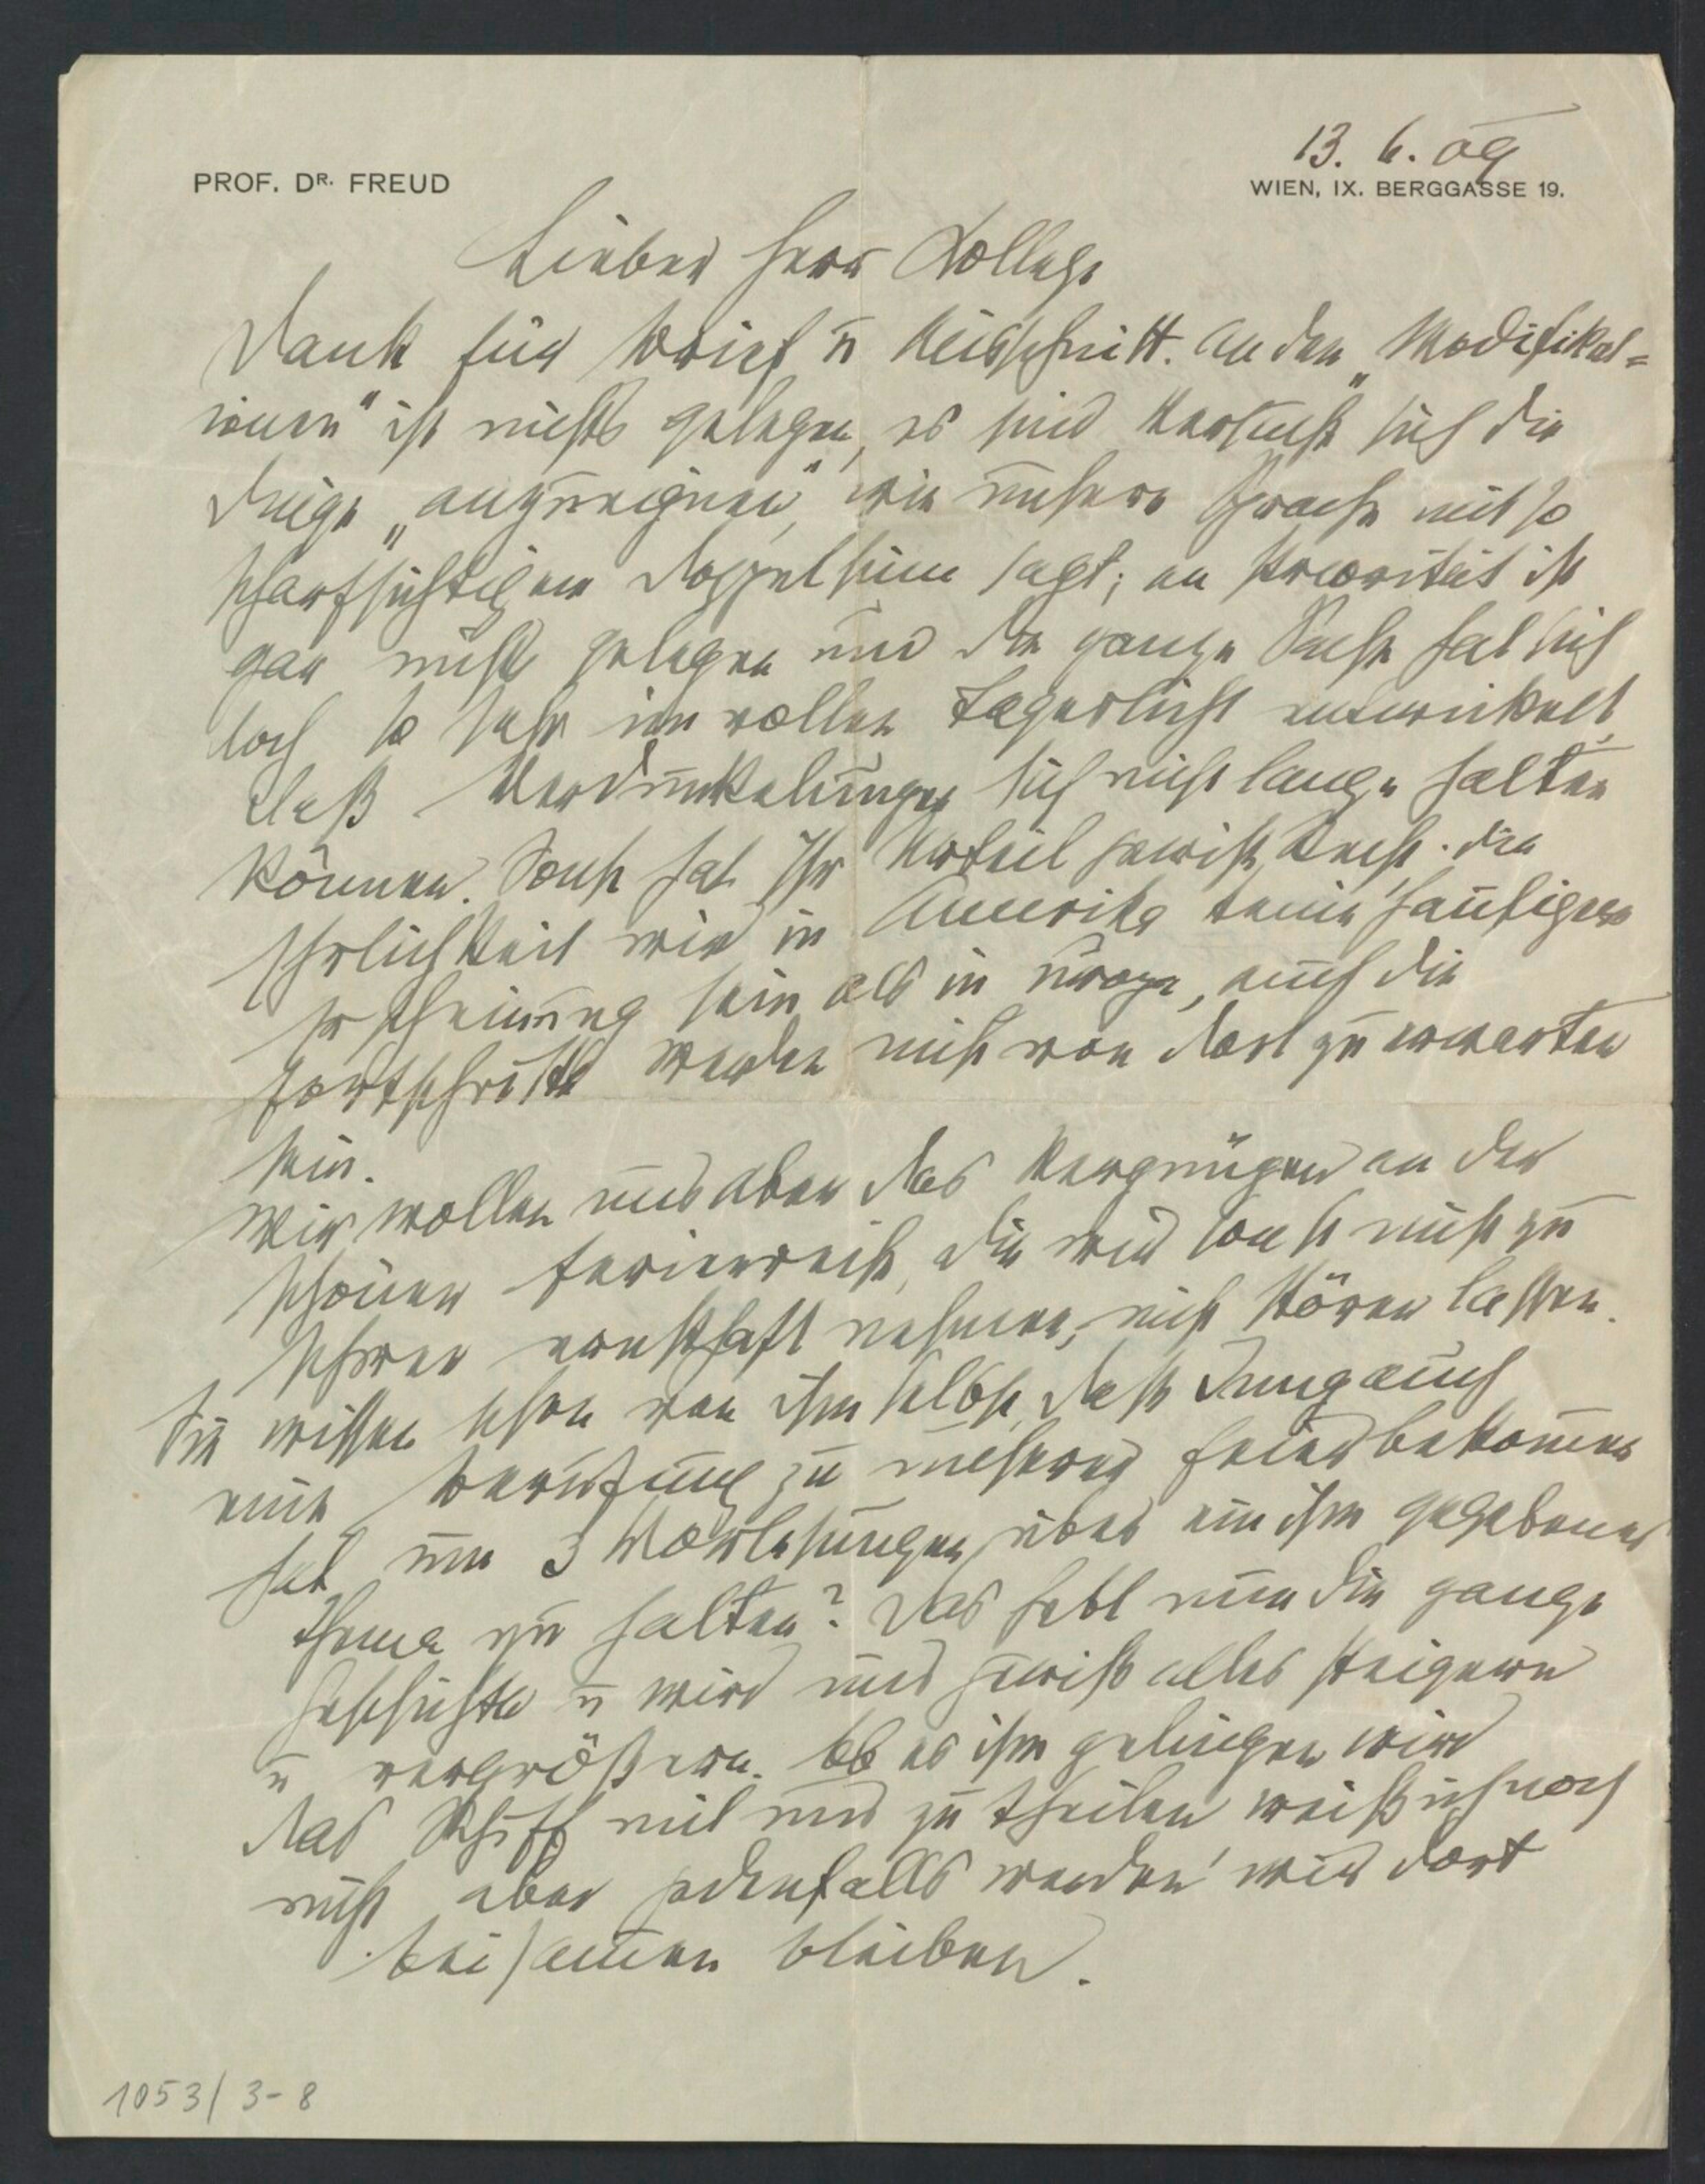 13. 6. 09
PROF. DR. FREUD
WIEN, IX. BERGGASSE 19.
Lieber Herr College
Dank für Brief u Ausschnitt. An den „Modifikat=
ionen“ ist nichts gelegen, es sind Versuche sich die
Dinge „anzueignen“, wie unsere Sprache mit so
scharfsichtigem Doppelsinn sagt; an Priorität ist
gar nichts gelegen und die ganze Sache hat sich
doch so sehr im vollen Tageslicht entwickelt,
daß Verdunkelungen sich nicht lange halten
können. Sonst hat Ihr Urteil gewiß Recht. Die
Ehrlichkeit wird in Amerika keine häufigere
Erscheinung sein als in Europa, auch die
Fortschritte werden nicht von dort zu erwarten
sein.
Wir wollen uns aber das Vergnügen an der
schönen Ferienreise, die wir sonst nicht zu
schwer ernsthaft nehmen, nicht stören lassen.
Sie wissen schon von ihm selbst, daß Jung auch
eine Berufung zu unserer Feier bekommen
hat um 3 Vorlesungen über ein ihm gegebenes
Thema zu halten? Das hebt nun die ganze
Geschichte u wird uns gewiß alles steigern
u vergrößern. Ob es ihm gelingen wird
das Schiff mit uns zu theilen weiß ich noch
nicht aber jedenfalls werden wir dort
beisammen bleiben.
1053/3-8